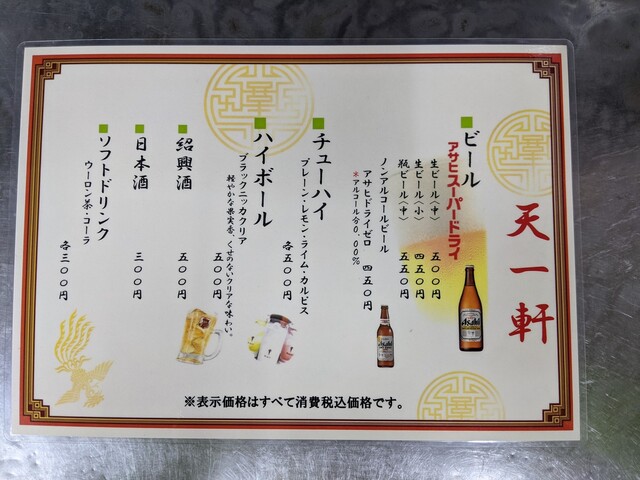 天一軒
■ビール
アサヒスーパードライ
生ビール（中） 五００円
生ビール（小） 四五０円
瓶ビール（中） 五五０円
ノンアルコールビール
アサヒドライゼロ 四五０円
※アルコール分０.００％
■チューハイ
プレーン・レモン・ライム・カルピス
各五００円
■ハイボール
ブラックニッカクリア 五００円
軽やかな果実香、くせのないクリアな味わい。
■紹興酒 五００円
■日本酒 三００円
■ソフトドリンク
ウーロン茶・コーラ
各三００円
※表示価格はすべて消費税込価格です。
Asahi
Asahi